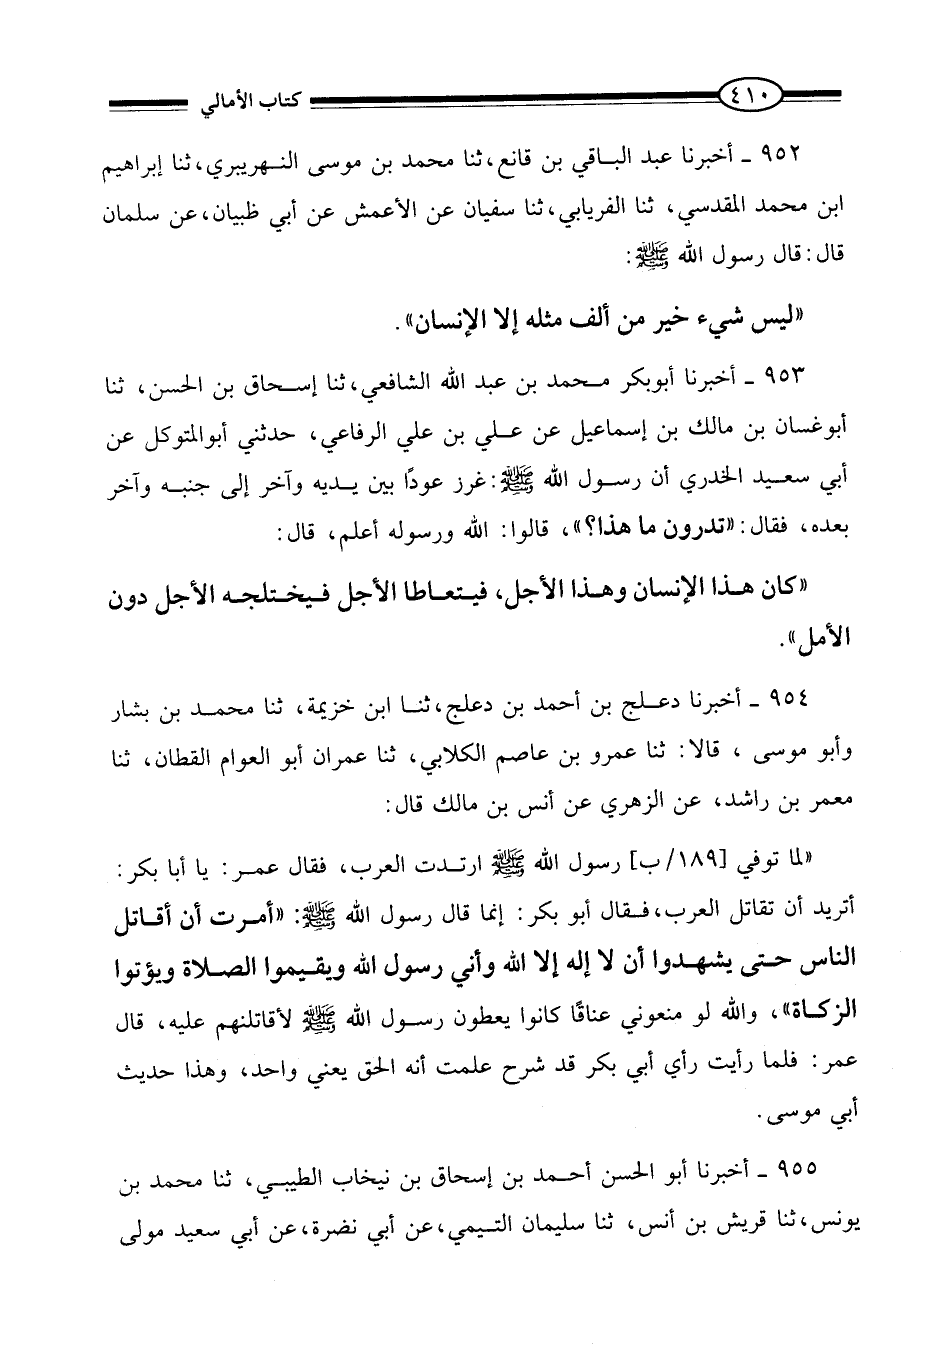 ٤١٠ كتاب الأمالي
٩٥٢ ـ أخبرنا عبد الباقي بن قانع، ثنا محمد بن موسى النهريبري، ثنا إبراهيم
ابن محمد المقدسي، ثنا الفريابي، ثنا سفيان عن الأعمش عن أبي ظبيان، عن سلمان
قال: قال رسول الله ﷺ:
«ليس شيء خير من ألف مثله إلا الإنسان».
٩٥٣ ـ أخبرنا أبوبكر محمد بن عبد الله الشافعي، ثنا إسحاق بن الحسن، ثنا
أبوغسان بن مالك بن إسماعيل عن علي بن علي الرفاعي، حدثني أبوالمتوكل عن
أبي سعيد الخدري أن رسول الله ﷺ: غرز عودًا بين يديه وآخر إلى جنبه وآخر
بعده، فقال: «تدرون ما هذا؟»، قالوا: الله ورسوله أعلم، قال:
«كان هذا الإنسان وهذا الأجل، فيتعاطا الأجل فيختلجه الأجل دون
الأمل».
٩٥٤ ـ أخبرنا دعلج بن أحمد بن دعلج، ثنا ابن خزيمة، ثنا محمد بن بشار
وأبو موسى ، قالا: ثنا عمرو بن عاصم الكلابي، ثنا عمران أبو العوام القطان، ثنا
معمر بن راشد، عن الزهري عن أنس بن مالك قال:
«لما توفي [١٨٩/ب] رسول الله ﷺ ارتدت العرب، فقال عمر: يا أبا بكر:
أتريد أن تقاتل العرب، فقال أبو بكر: إنما قال رسول الله ﷺ: «أمرت أن أقاتل
الناس حتى يشهدوا أن لا إله إلا الله وأني رسول الله ويقيموا الصلاة ويؤتوا
الزكاة»، والله لو منعوني عناقًا كانوا يعطون رسول الله ﷺ لأقاتلنهم عليه، قال
عمر: فلما رأيت رأي أبي بكر قد شرح علمت أنه الحق يعني واحد، وهذا حديث
أبي موسى.
٩٥٥ ـ أخبرنا أبو الحسن أحمد بن إسحاق بن نيخاب الطيبي، ثنا محمد بن
يونس، ثنا قريش بن أنس، ثنا سليمان التيمي، عن أبي نضرة، عن أبي سعيد مولى